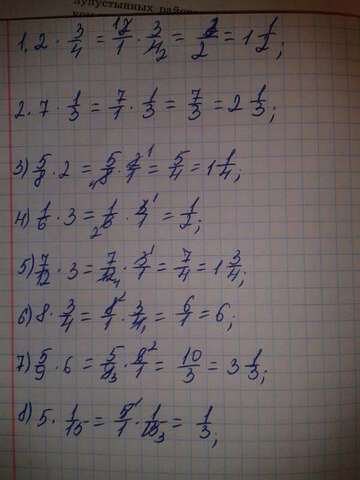 1. 2 · 3/4 = 2/1 · 3/4 = 3/2 = 1 1/2;
2. 7 · 1/3 = 7/1 · 1/3 = 7/3 = 2 1/3;
3) 5/8 · 2 = 5/8 · 2/1 = 5/4 = 1 1/4;
4) 1/6 · 3 = 1/6 · 3/1 = 1/2;
5) 7/12 · 3 = 7/12 · 3/1 = 7/4 = 1 3/4;
6) 8 · 3/4 = 8/1 · 3/4 = 6/1 = 6;
7) 5/9 · 6 = 5/9 · 6/1 = 10/3 = 3 1/3;
8) 5 · 1/15 = 5/1 · 1/15 = 1/3;